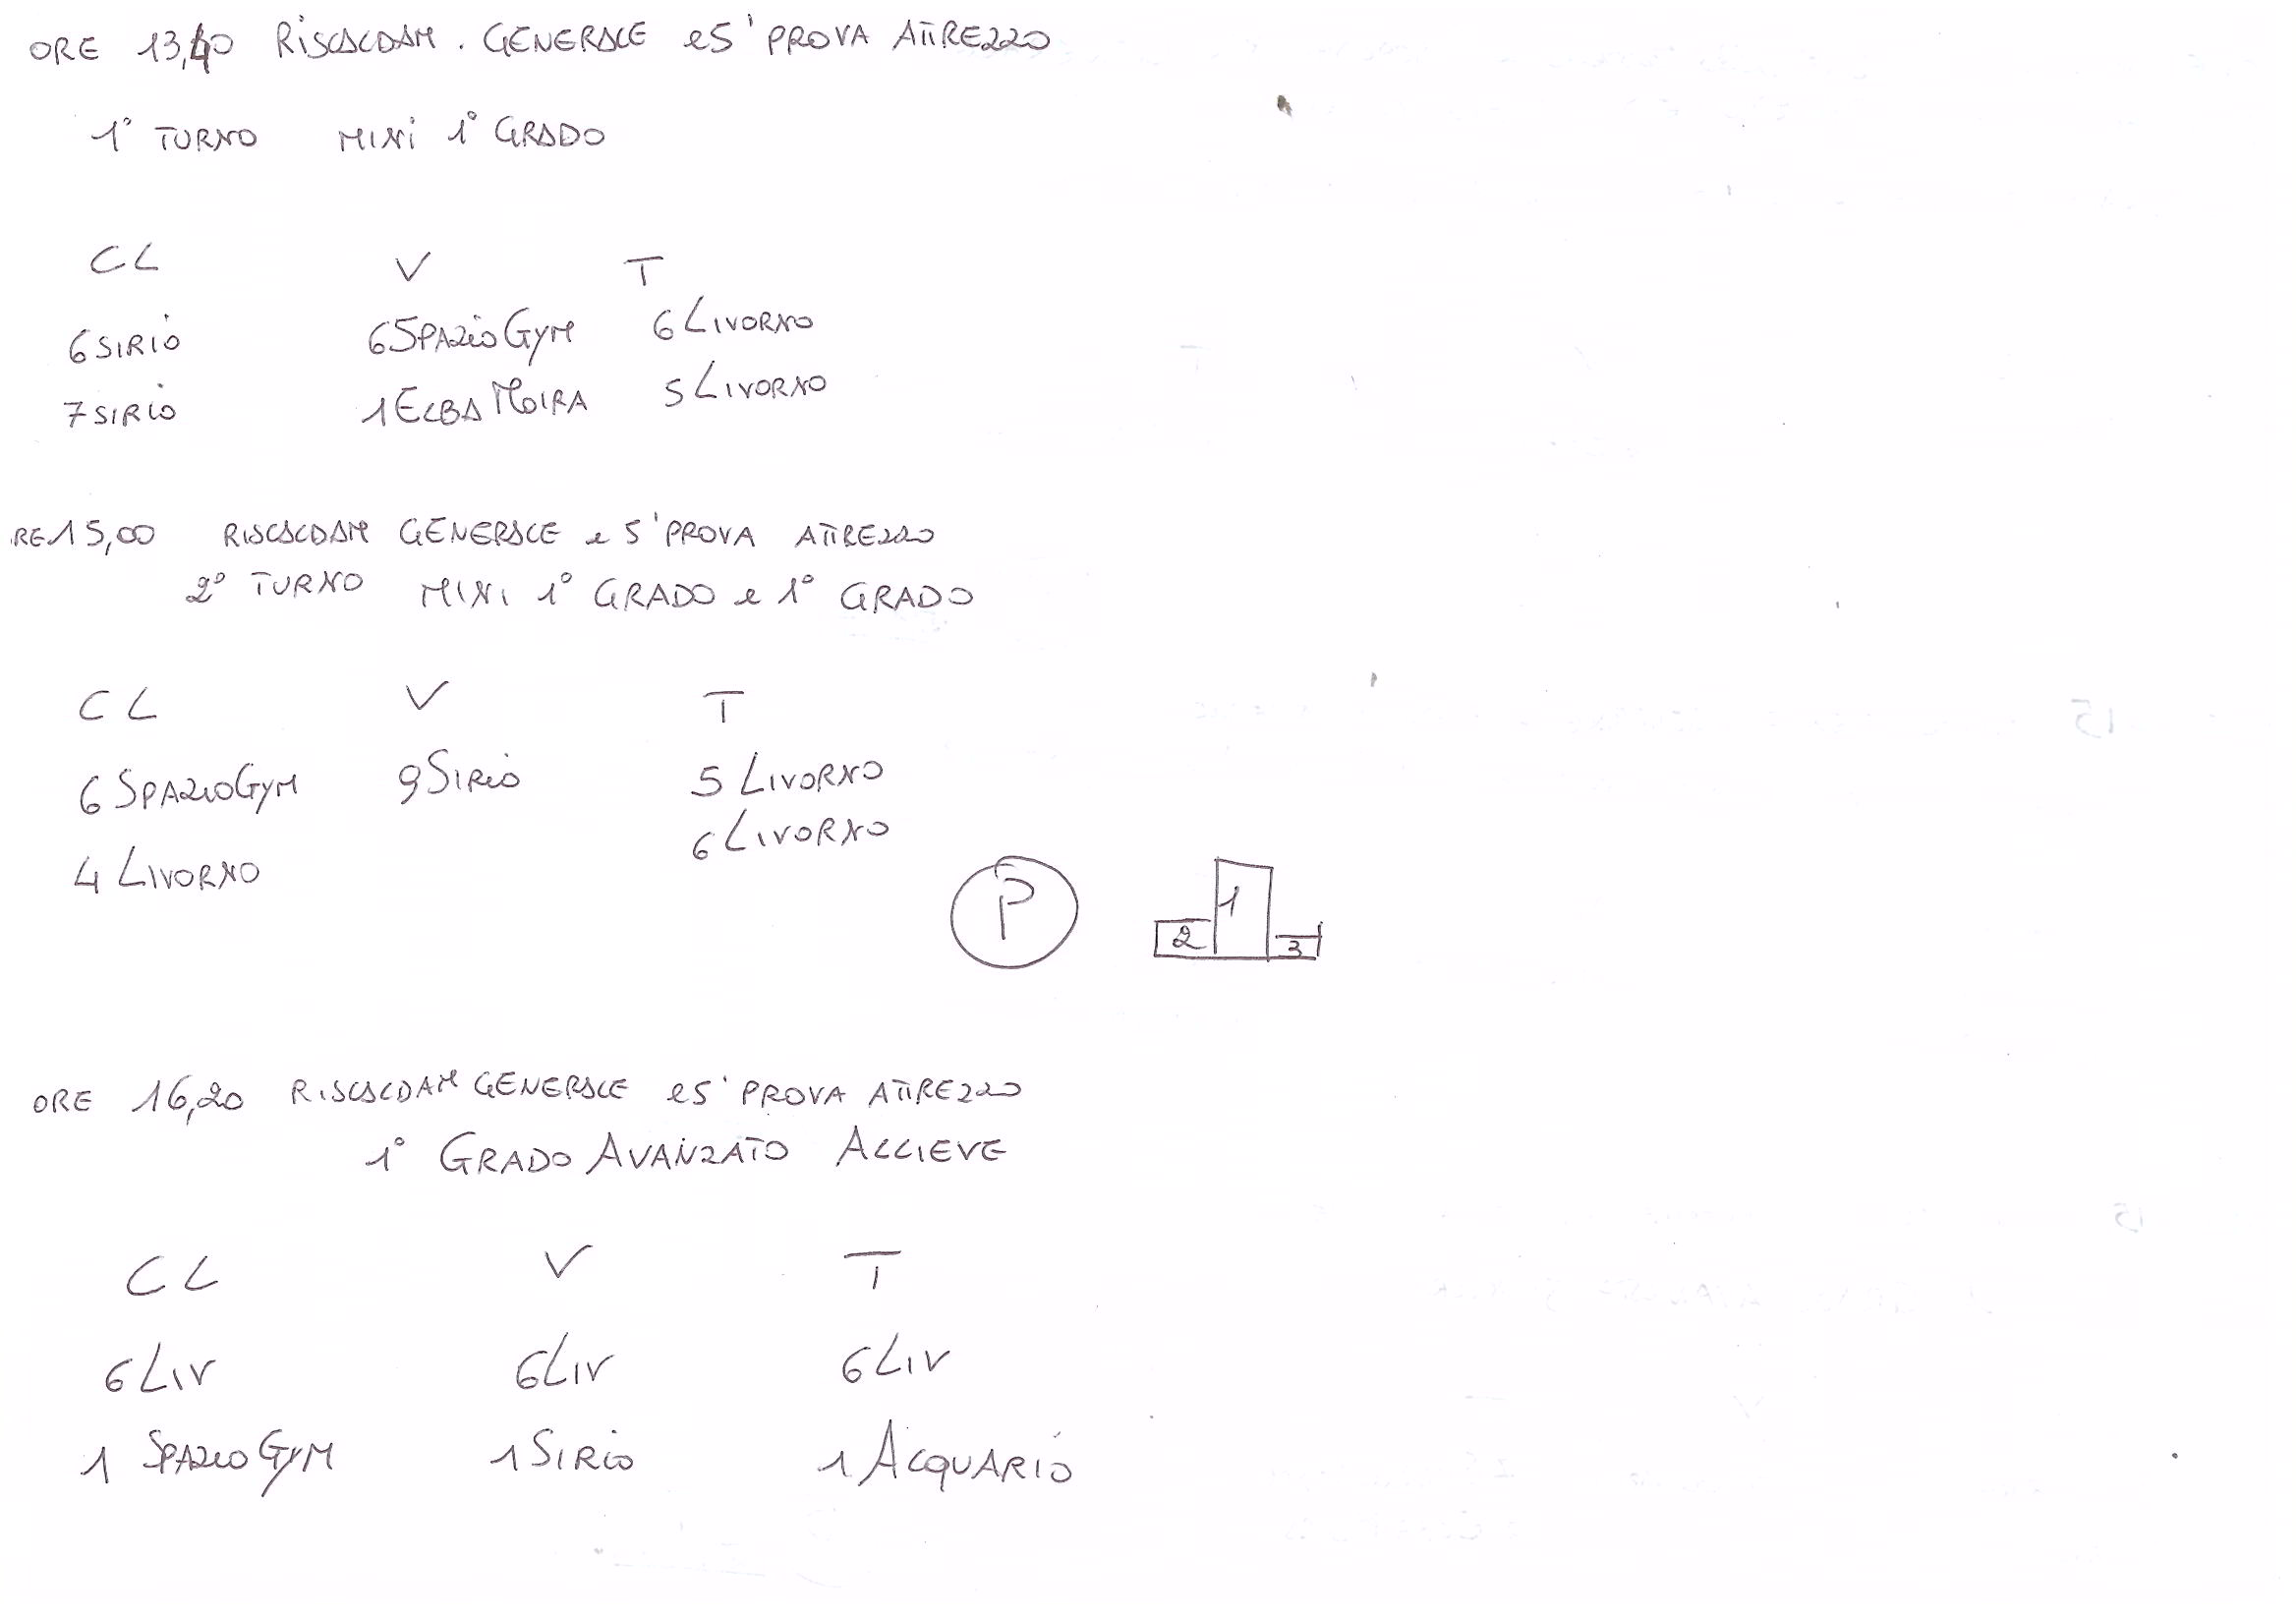 ORE 13,40 RISCALDAM. GENERALE e 5' PROVA ATTREZZO
1° TURNO MINI 1° GRADO
CL V T
6 SIRIO 6 SPAZIO GYM 6 LIVORNO
7 SIRIO 1 ELBA MOIRA 5 LIVORNO
RE 15,00 RISCALDAM GENERALE e 5' PROVA ATTREZZO
2° TURNO MINI 1° GRADO e 1° GRADO
CL V T
6 SPAZIO GYM 9 SIRIO 5 LIVORNO
4 LIVORNO 6 LIVORNO
P 2 1 3
ORE 16,20 RISCALDAM GENERALE e 5' PROVA ATTREZZO
1° GRADO AVANZATO ALLIEVE
CL V T
6 LIV 6 LIV 6 LIV
1 SPAZIO GYM 1 SIRIO 1 ACQUARIO